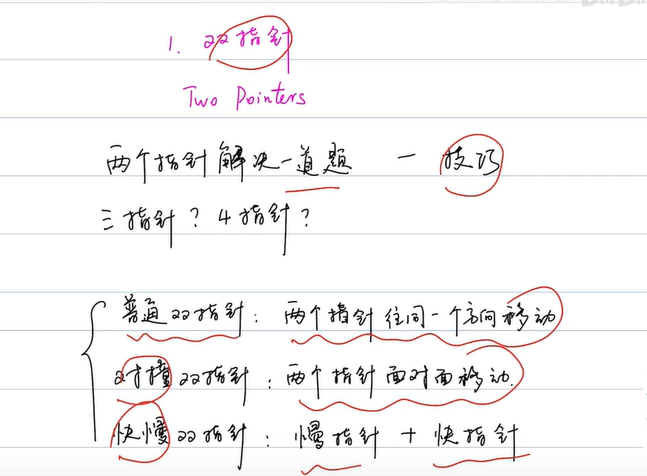 1. 双指针
Two Pointers
两个指针解决一道题 — 技巧
三指针？4指针？
普通双指针：两个指针往同一个方向移动
对撞双指针：两个指针面对面移动.
快慢双指针：慢指针 + 快指针